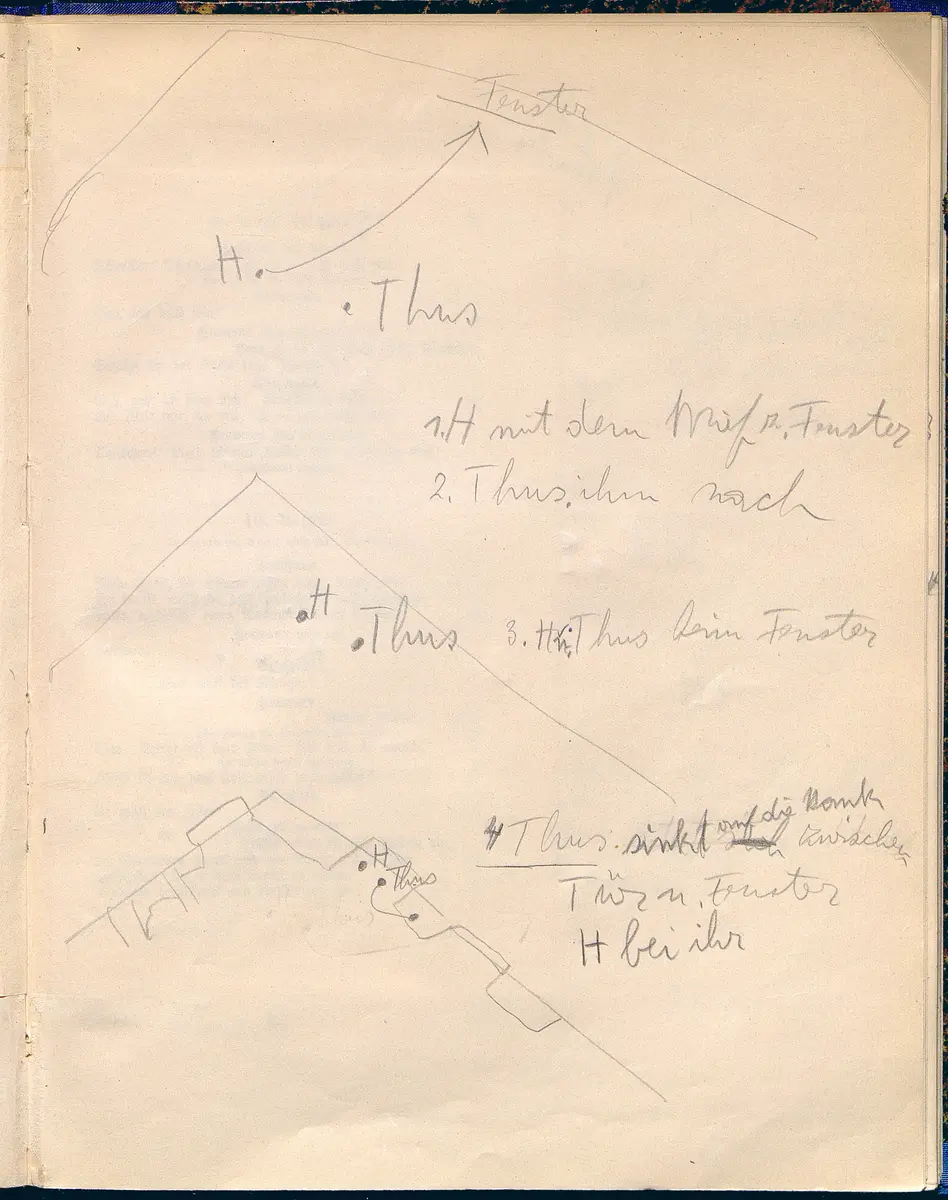 Fenster
H.
. Thus
1. H mit dem Brief z. Fenster
2. Thus. ihm nach
H
Thus
3. H u. Thus beim Fenster
4 Thus. sinkt auf die Bank zwischen
Tür u. Fenster
H bei ihr
H
Thus